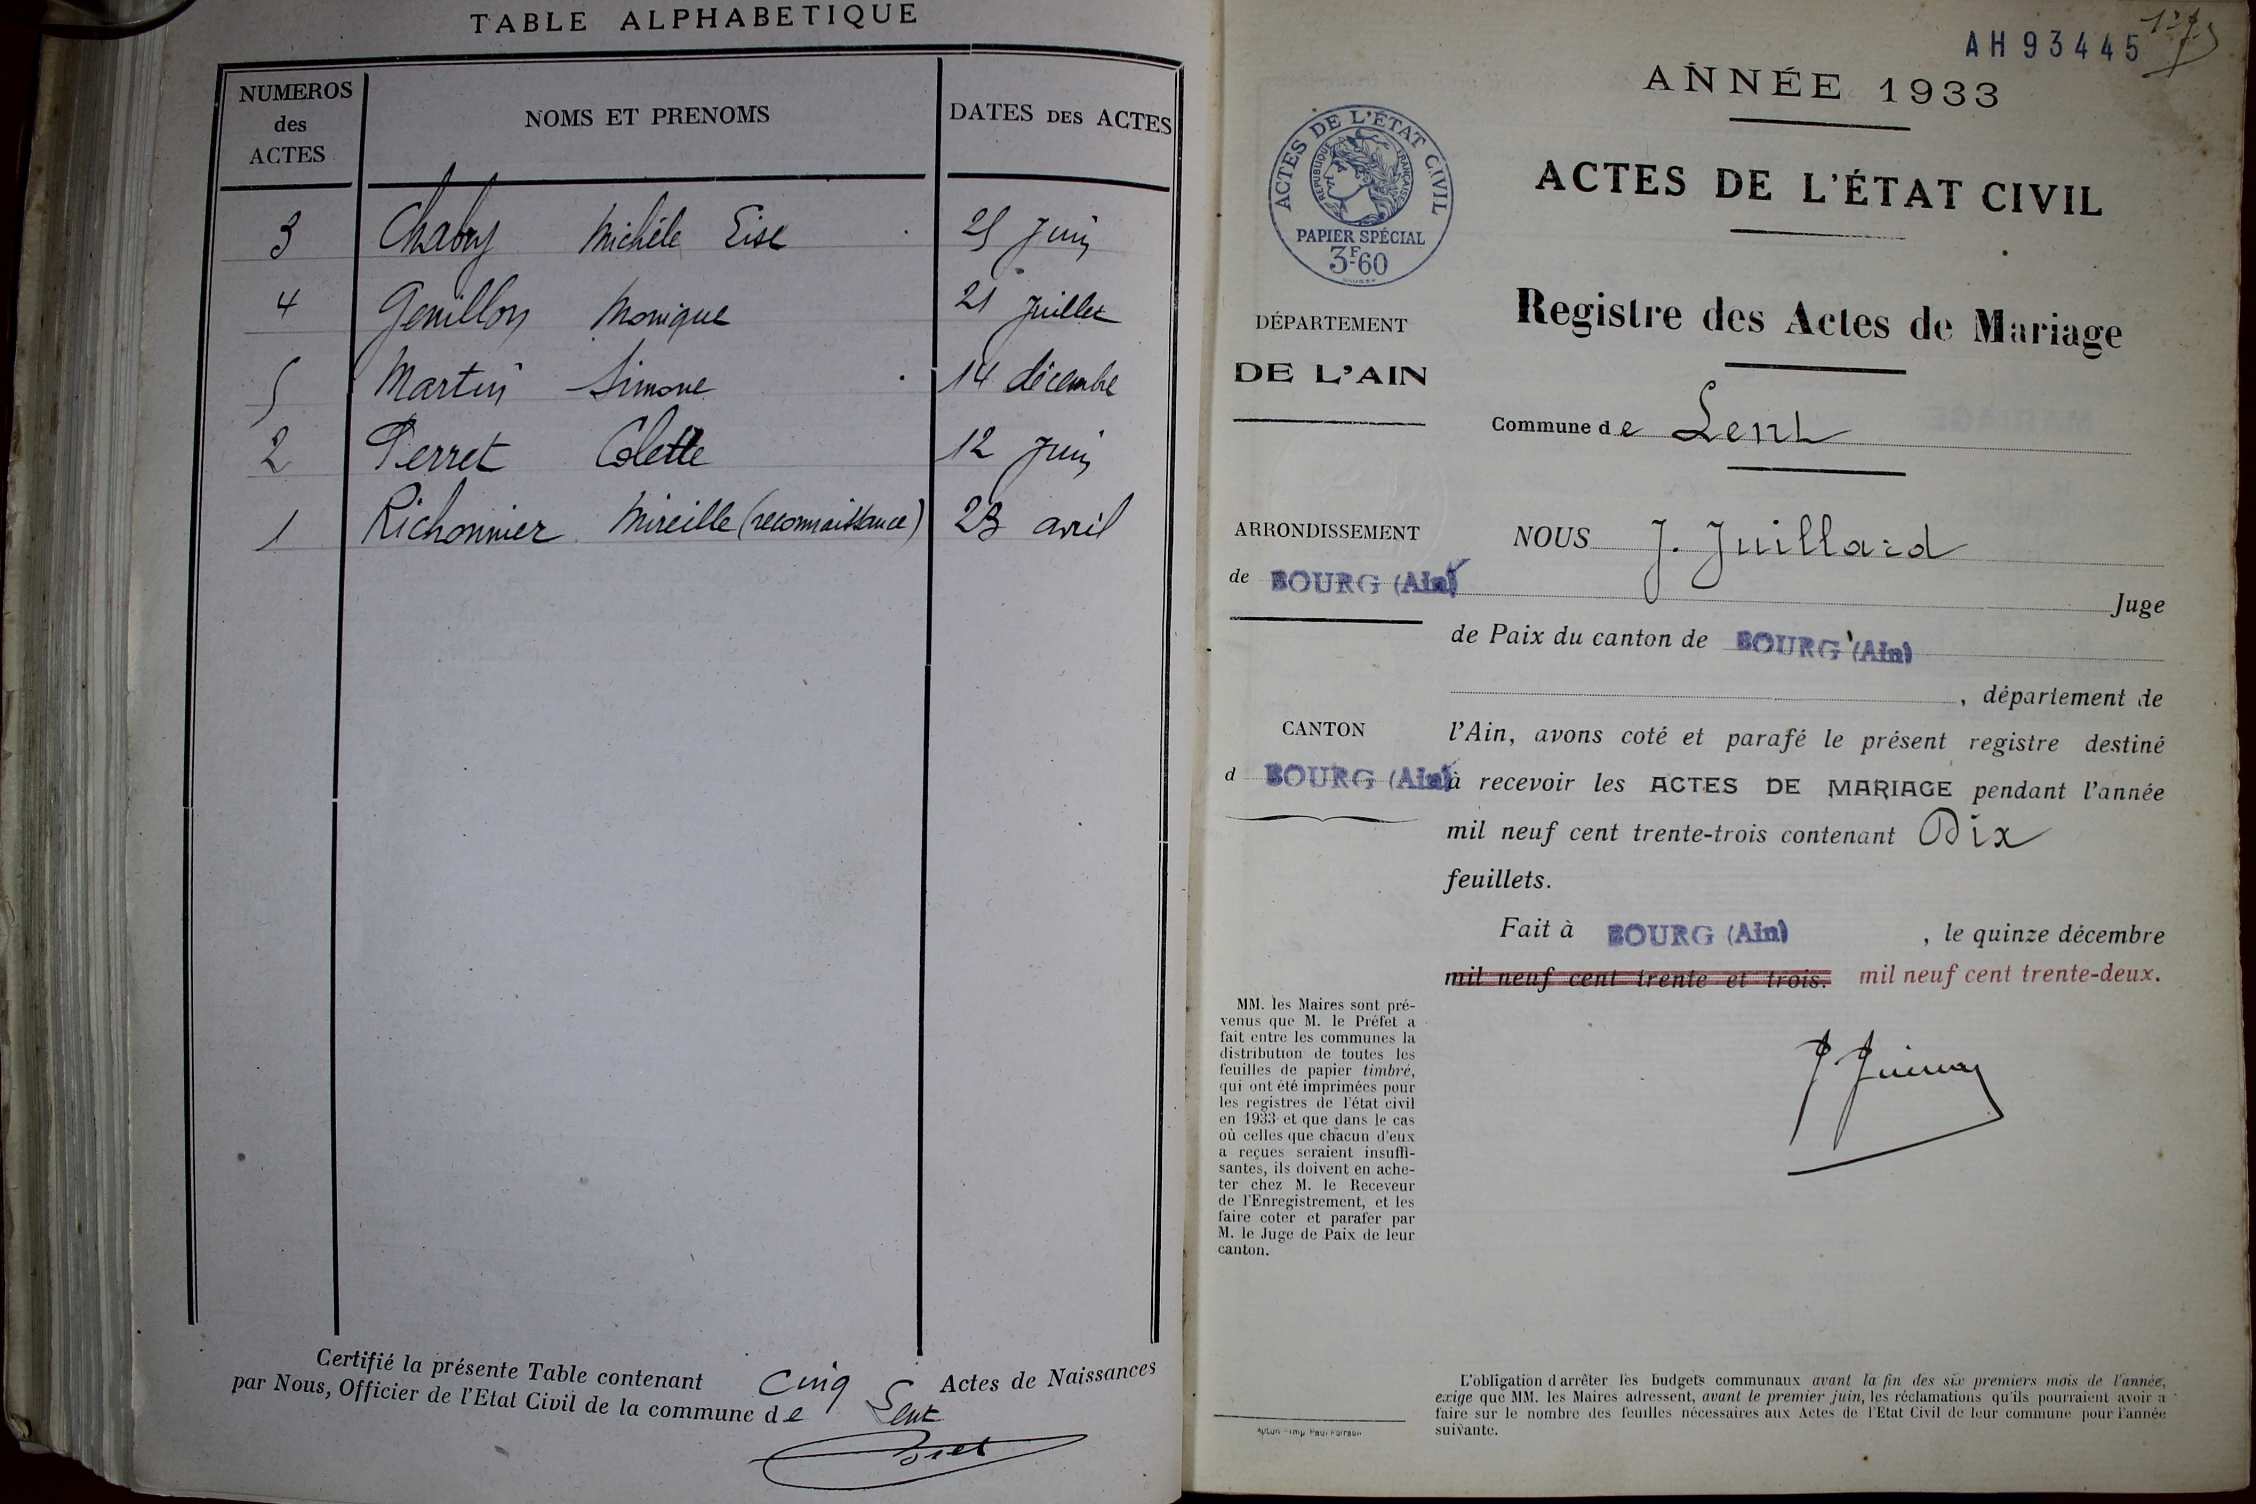 TABLE ALPHABETIQUE
NUMEROS des ACTES
NOMS ET PRENOMS
DATES DES ACTES
3 Chabry Michèle Eise 25 Juin
4 Genillon Monique 21 Juillet
5 Martin Simone 14 décembre
2 Perret Colette 12 Juin
1 Richonnier Mireille (reconnaissance) 23 avril
Certifié la présente Table contenant cinq Actes de Naissances
par Nous, Officier de l'Etat Civil de la commune de Lent
AH 93445
ANNÉE 1933
ACTES DE L'ÉTAT CIVIL
RÉPUBLIQUE FRANÇAISE
PAPIER SPÉCIAL
3F60
ACTES DE L'ÉTAT CIVIL
Registre des Actes de Mariage
Commune de Lent
DÉPARTEMENT
DE L'AIN
ARRONDISSEMENT
de BOURG (Ain)
CANTON
d BOURG (Ain)
NOUS J. Juillard
Juge
de Paix du canton de BOURG (Ain)
, département de
l'Ain, avons coté et parafé le présent registre destiné
à recevoir les ACTES DE MARIAGE pendant l'année
mil neuf cent trente-trois contenant Dix
feuillets.
Fait à BOURG (Ain) , le quinze décembre
mil neuf cent trente et trois. mil neuf cent trente-deux.
MM. les Maires sont pré-
venus que M. le Préfet a
fait entre les communes la
distribution de toutes les
feuilles de papier timbré,
qui ont été imprimées pour
les registres de l'état civil
en 1933 et que dans le cas
où celles que chacun d'eux
a reçues seraient insuffi-
santes, ils doivent en ache-
ter chez M. le Receveur
de l'Enregistrement, et les
faire coter et parafer par
M. le Juge de Paix de leur
canton.
L'obligation d'arrêter les budgets communaux avant la fin des six premiers mois de l'année,
exige que MM. les Maires adressent, avant le premier juin, les réclamations qu'ils pourraient avoir à
faire sur le nombre des feuilles nécessaires aux Actes de l'Etat Civil de leur commune pour l'année
suivante.